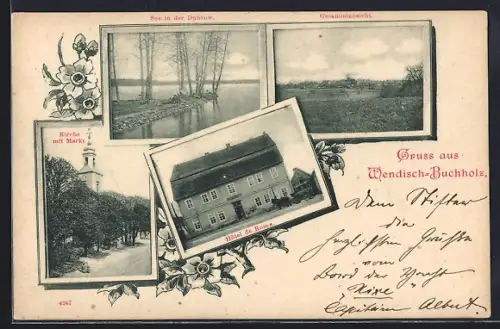 See in der Dubrow.
Gesammtansicht.
Kirche
mit Markt
Hôtel de Russe
Gruss aus
Wendisch-Buchholz,
Dem Stifter
die
herzlichsten Grüsse
vom
Bord der Yacht
"Nixe"
Capitain Albert
4247